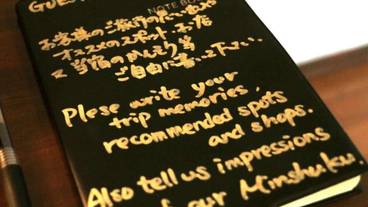 GUES
NOTE BOOK
お客様のご旅行の思い出や
オススメのスポット・お店
又当宿のかんそう等
ご自由に書いて下さい。
Plese write your
trip memories,
recommended spots
and shops.
Also tell us impressions
our Minshuku.